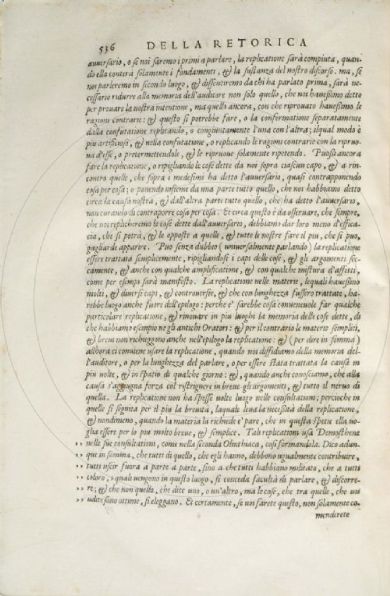 536 DELLA RETORICA
auuersario, o se noi saremo i primi a parlare, la replicatione sarà compiuta, quan-
do ella conterà solamente i fundamenti, & la sustanza del nostro discorso. ma, se
noi parleremo in secondo luogo, & discuteremo da chi ha parlato prima, sarà ne-
cessario ridurre alla memoria dell'auditore non solo quello, che noi hauessimo detto
per prouare la nostra intentione, ma quelli ancora, con che riprouato hauessimo le
ragioni contrarie: & questo si potrebbe fare, o la confermatione separatamente
dalla confutatione replicando, o congiuntamente l'una con l'altra; il qual modo è
più artifitioso, & nella confutatione, o replicando le ragioni contrarie con la ripruo-
ua d'esse, o pretermettendole, & le ripruoue solamente ripetendo. Puossi ancora
fare la replicatione, o ripigliando le cose dette da noi sopra ciascun capo, & a rin-
contro quelle, che sopra i medesimi ha detto l'auuersario, quasi contrapponendo
cosa per cosa: o ponendo insieme da una parte tutto quello, che noi habbiamo detto
circa la causa nostra, & dall'altra parte tutto quello, che ha detto l'auuersario,
non curando di contraporre cosa per cosa. Et circa questo è da osseruare, che sempre,
che noi replicheremo le cose dette dall'auuersario, debbiamo dar loro meno d'effica-
cia, che si potrà, & le opposte a quelle, & tutte le nostre fare il più, che si può,
gagliarde apparire. Può senza dubbio (uniuersalmente parlando) la replicatione
essere trattata semplicemente, ripigliandosi i capi delle cose, & gli argomenti sec-
camente, & anche con qualche amplificatione, & con qualche mistura d'affetti,
come per esempi sarà manifesto. La replicatione nelle materie, lequali hauessino
molti, & diuersi capi, & controuersie, & che con lunghezza fussero trattate, ha-
rebbe luogo anche fuore dell'epilogo: perche è sarebbe cosa conueneuole far qualche
particolare replicatione, & rinouare in più luoghi la memoria delle cose dette, di
che habbiamo esempio ne gli antichi Oratori: & per il contrario le materie semplici,
& breui non richeggono anche nell'epilogo la replicatione: & (per dire in somma)
allhora ci conuien usare la replicatione, quando noi diffidiamo della memoria del-
l'auditore, o per la lunghezza del parlare, o per essere stata trattata la causa in
più volte, & in spatio di qualche giorno: & quando anche conosciamo, che alla
causa s'aggiugna forza col restrignere in breue gli argomenti, & tutto il neruo di
quella. La replicatione non ha spesse uolte luogo nelle consultationi; percioche in
quelle si seguita per il più la breuità, laquale leua la necessità della replicatione,
& nondimeno, quando la materia la richiede è pare, che in questa spetie ella uo-
glia essere per lo più molto breue, & semplice. Tal replicationi usa Demosthene
nelle sue consultationi, come nella seconda Olinthiaca, così formandola. Dico adun-
que in somma, che tutti di quello, che egli hanno, debbono ugualmente contribuire,
tutti uscir fuora a parte a parte, sino a che tutti habbiano militato, che a tutti
coloro, i quali uengono in questo luogo, si conceda facultà di parlare, & discorre-
re; & che non quello, che dice uno, o un'altro, ma le cose, che tra quelle, che uoi
udite sono ottime, si eleggano. Et certamente, se uoi farete questo, non solamente co-
menderete